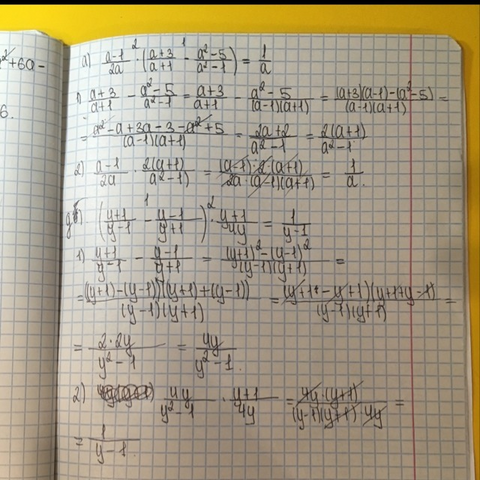 ²+6a-
6.
a) \frac{a-1}{2a} \cdot^{2} (\frac{a+3}{a+1} -^{1} \frac{a²-5}{a²-1}) = \frac{1}{a}
1) \frac{a+3}{a+1} - \frac{a²-5}{a²-1} = \frac{a+3}{a+1} - \frac{a²-5}{(a-1)(a+1)} = \frac{(a+3)(a-1)-(a²-5)}{(a-1)(a+1)} =
= \frac{a²-a+3a-3-a²+5}{(a-1)(a+1)} = \frac{2a+2}{a²-1} = \frac{2(a+1)}{a²-1}
2) \frac{a-1}{2a} \cdot \frac{2(a+1)}{a²-1} = \frac{(a-1)·2·(a+1)}{2a·(a-1)(a+1)} = \frac{1}{a}.
) (\frac{y+1}{y-1} -^{1} \frac{y-1}{y+1})^{2} \cdot \frac{y+1}{4y} = \frac{1}{y-1}
1) \frac{y+1}{y-1} - \frac{y-1}{y+1} = \frac{(y+1)²-(y-1)²}{(y-1)(y+1)} =
= \frac{((y+1)-(y-1))((y+1)+(y-1))}{(y-1)(y+1)} = \frac{(y+1-y+1)(y+1+y-1)}{(y-1)(y+1)} =
= \frac{2·2y}{y²-1} = \frac{4y}{y²-1}.
2) \frac{4y}{y²-1} \cdot \frac{y+1}{4y} = \frac{4y·(y+1)}{(y-1)(y+1)·4y} =
= \frac{1}{y-1}